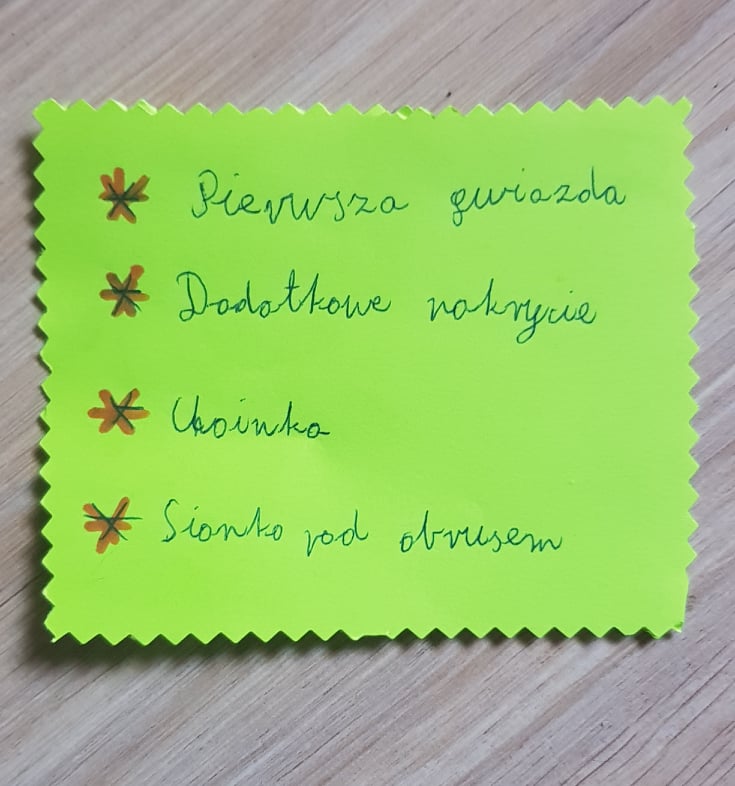 Pierwsza gwiazda
Dodatkowe nakrycie
Choinka
Sianko pod obrusem